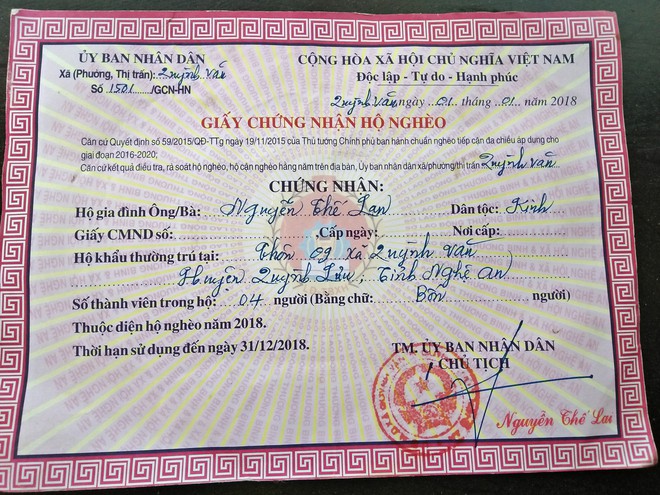 ỦY BAN NHÂN DÂN
Xã (Phường, Thị trấn): Quỳnh Văn
Số 1501 /GCN-HN
CỘNG HÒA XÃ HỘI CHỦ NGHĨA VIỆT NAM
Độc lập - Tự do - Hạnh phúc
Quỳnh Văn ngày 01 tháng 01 năm 2018
GIẤY CHỨNG NHẬN HỘ NGHÈO
Căn cứ Quyết định số 59/2015/QĐ-TTg ngày 19/11/2015 của Thủ tướng Chính phủ ban hành chuẩn nghèo tiếp cận đa chiều áp dụng cho
giai đoạn 2016-2020;
Căn cứ kết quả điều tra, rà soát hộ nghèo, hộ cận nghèo hằng năm trên địa bàn, Ủy ban nhân dân xã/phường/thị trấn Quỳnh Văn
CHỨNG NHẬN:
Hộ gia đình Ông/Bà: Nguyễn Thế Lan Dân tộc: Kinh
Giấy CMND số: Cấp ngày: Nơi cấp:
Hộ khẩu thường trú tại: Thôn 09 xã Quỳnh Văn
Huyện Quỳnh Lưu, Tỉnh Nghệ An
Số thành viên trong hộ: 04 người (Bằng chữ: Bốn người)
Thuộc diện hộ nghèo năm 2018.
Thời hạn sử dụng đến ngày 31/12/2018.
TM. ỦY BAN NHÂN DÂN
CHỦ TỊCH
Nguyễn Thế Lai